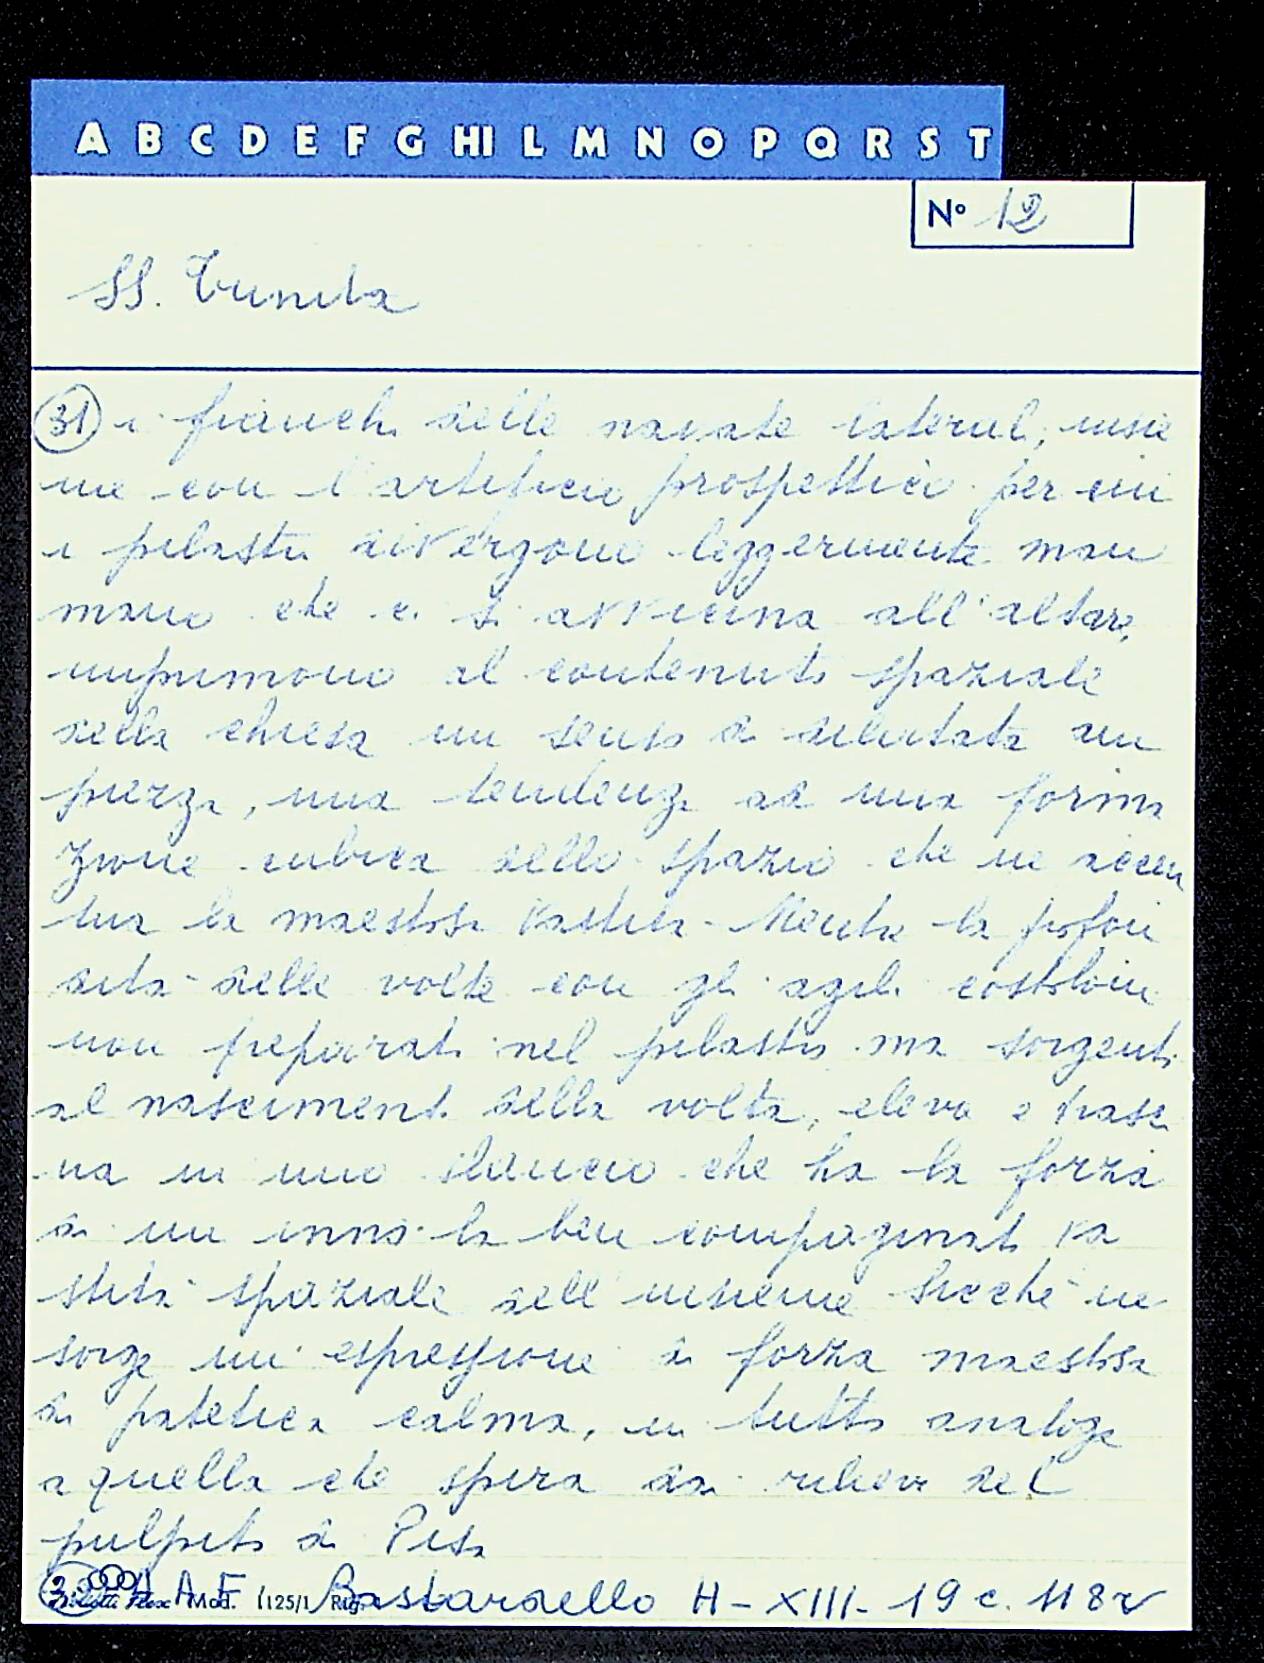 A B C D E F G HI L M N O P Q R S T
Nº 12
SS. Trinita
31 i fianchi delle navate laterali, insie
me con l'artificio prospettico per cui
i pilastri divergono leggermente man
mano che ci si avvicina all'altare,
imprimono al contenuto spaziale
della chiesa un senso di dilatata am
piezza, una tendenza ad una forma
zione cubica dello spazio che ne accen
tua la maestosa vastità. Mentre la profon
dità delle volte con gli agili costoloni
non preparati nel pilastro ma sorgenti
al nascimento della volta, eleva e trasci
na in uno slancio che ha la forza
di un inno la ben compaginata va
stità spaziale dell'insieme sicché ne
sorge un'espressione di forza maestosa
di patetica calma, in tutto analoga
a quella che spira dai rilievi del
pulpito di Pisa
32 A F Bastardello H - XIII - 19 c. 118 v
Mod. 1125/1 Rig.